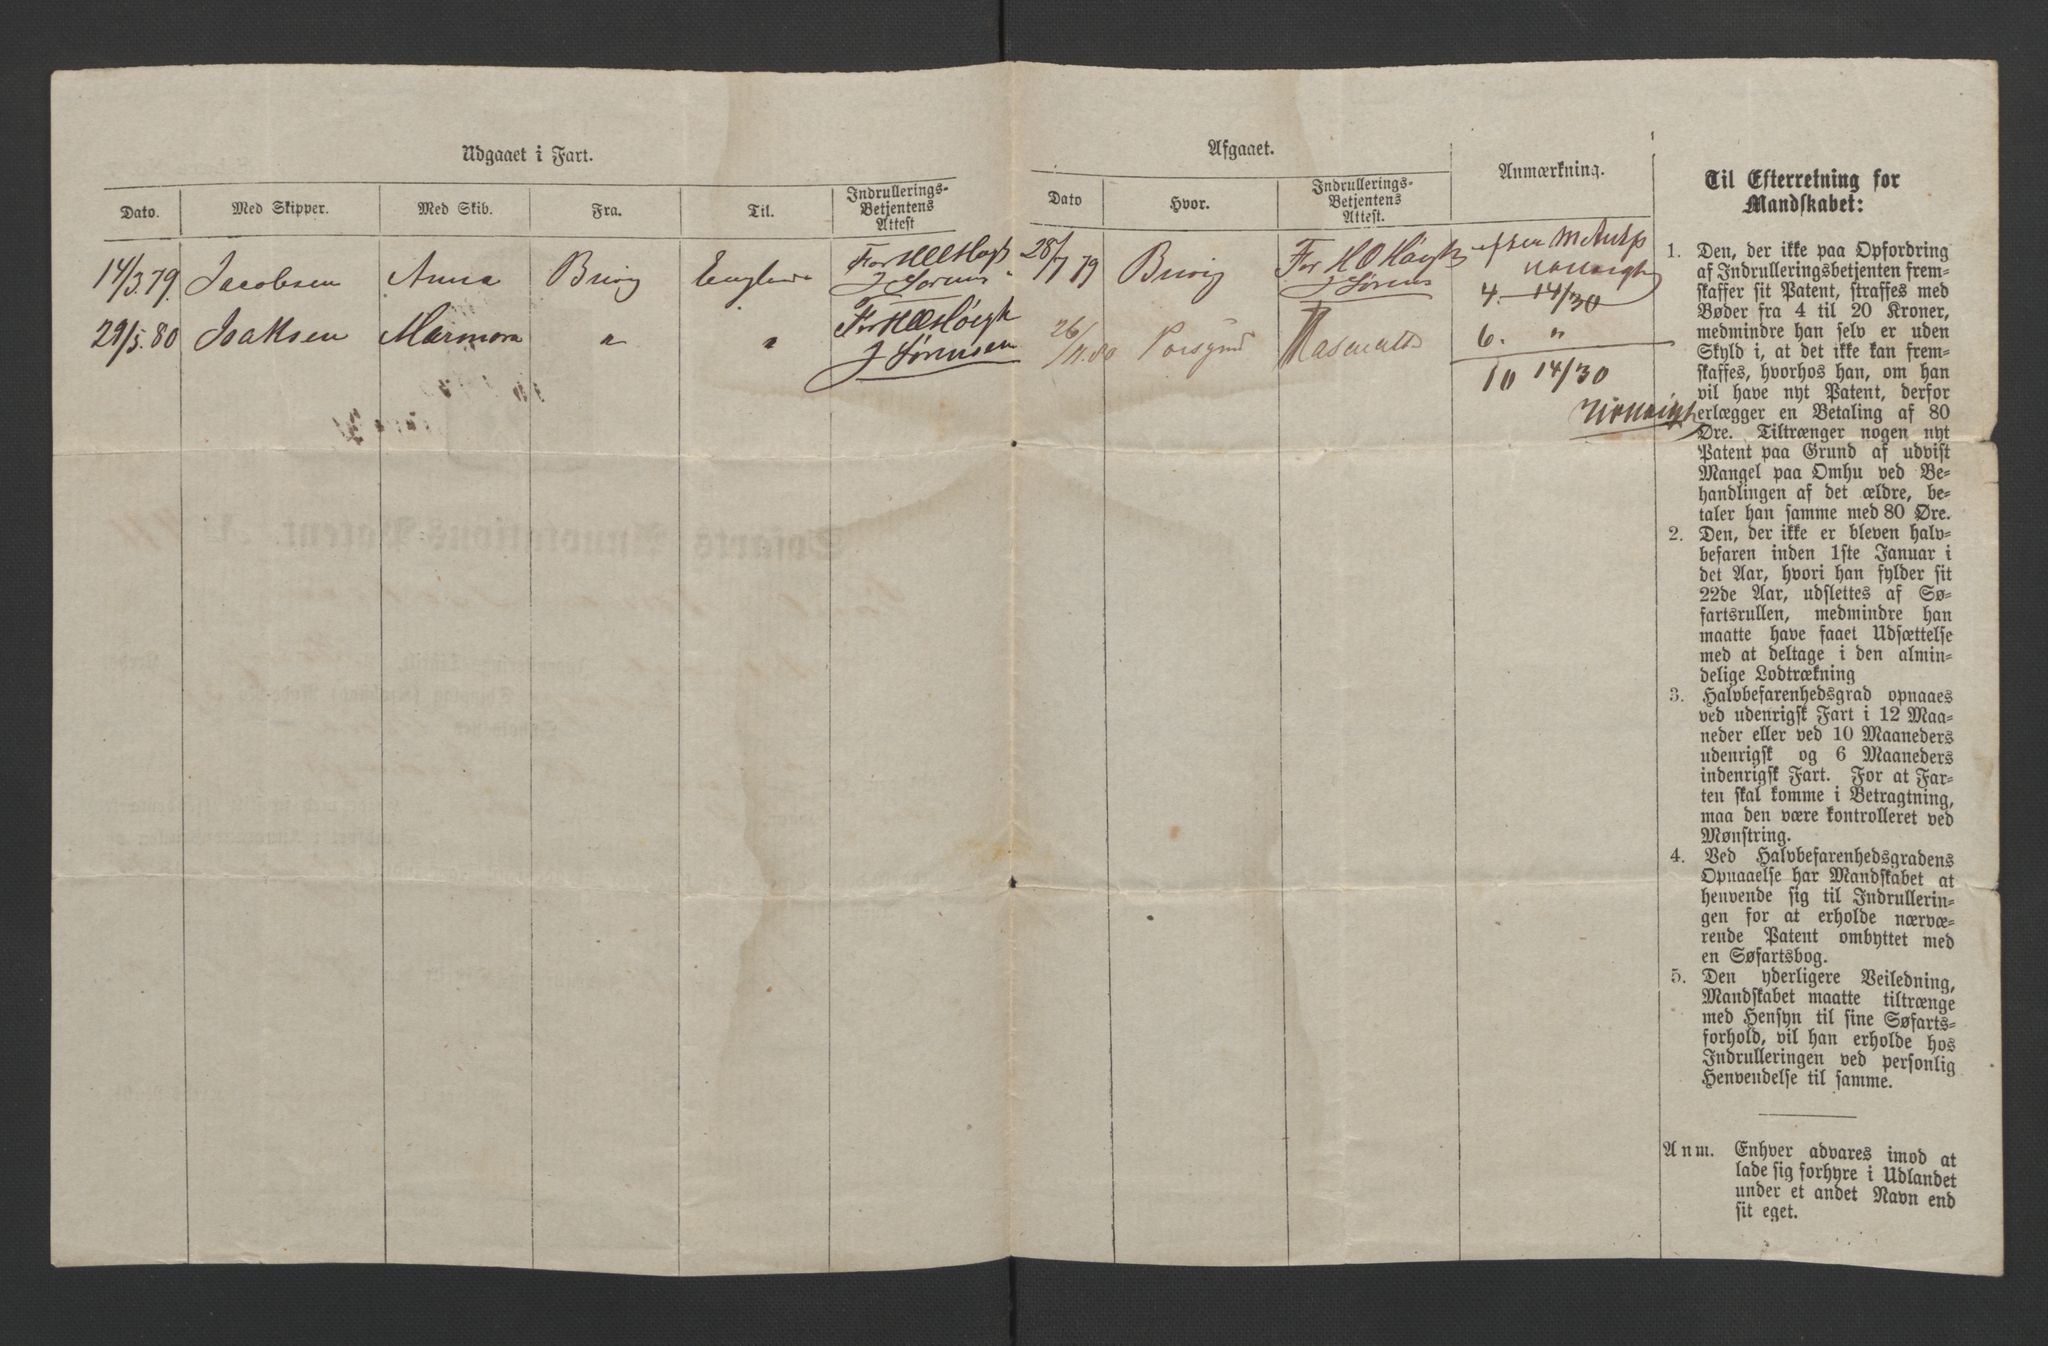 Udgaaet i Fart.
Afgaaet.
Anmærkning.
Dato. Med Skipper. Med Skib. Fra. Til. Indrullerings-
Betjentens
Attest
Dato Hvor. Indrullerings-
Betjentens
Attest.
14/3.79. Jacobsen Anna Brevig England For
J Sørens
28/7 79 Brevig For H O Høigh
J Sørens
efter
4 — 14/30
29/5.80 Isaksen Marmora " " For Høegh
J Sørensen
26/11.80 Porsgrund
6. "
10 14/30
Til Efterretning for
Mandskabet:
1. Den, der ikke paa Opfordring
af Indrulleringsbetjenten frem-
skaffer sit Patent, straffes med
Bøder fra 4 til 20 Kroner,
medmindre han selv er uden
Skyld i, at det ikke kan frem-
skaffes, hvorhos han, om han
vil have nyt Patent, derfor
erlægger en Betaling af 80
Øre. Tiltrænger nogen nyt
Patent paa Grund af udvist
Mangel paa Omhu ved Be-
handlingen af det ældre, be-
taler han samme med 80 Øre.
2. Den, der ikke er bleven halv-
befaren inden 1ste Januar i
det Aar, hvori han fylder sit
22de Aar, udslettes af Sø-
fartsrullen, medmindre han
maatte have faaet Udsættelse
med at deltage i den almin-
delige Lodtrækning
3. Halvbefarenhedsgrad opnaaes
ved udenrigsk Fart i 12 Maa-
neder eller ved 10 Maaneders
udenrigsk og 6 Maaneders
indenrigsk Fart. For at Far-
ten skal komme i Betragtning,
maa den være kontrolleret ved
Mønstring.
4. Ved Halvbefarenhedsgradens
Opnaaelse har Mandskabet at
henvende sig til Indrullerin-
gen for at erholde nærvæ-
rende Patent ombyttet med
en Søfartsbog.
5. Den yderligere Veiledning,
Mandskabet maatte tiltrænge
med Hensyn til sine Søfarts-
forhold, vil han erholde hos
Indrulleringen ved personlig
Henvendelse til samme.
Anm. Enhver advares imod at
lade sig forhyre i Udlandet
under et andet Navn end
sit eget.